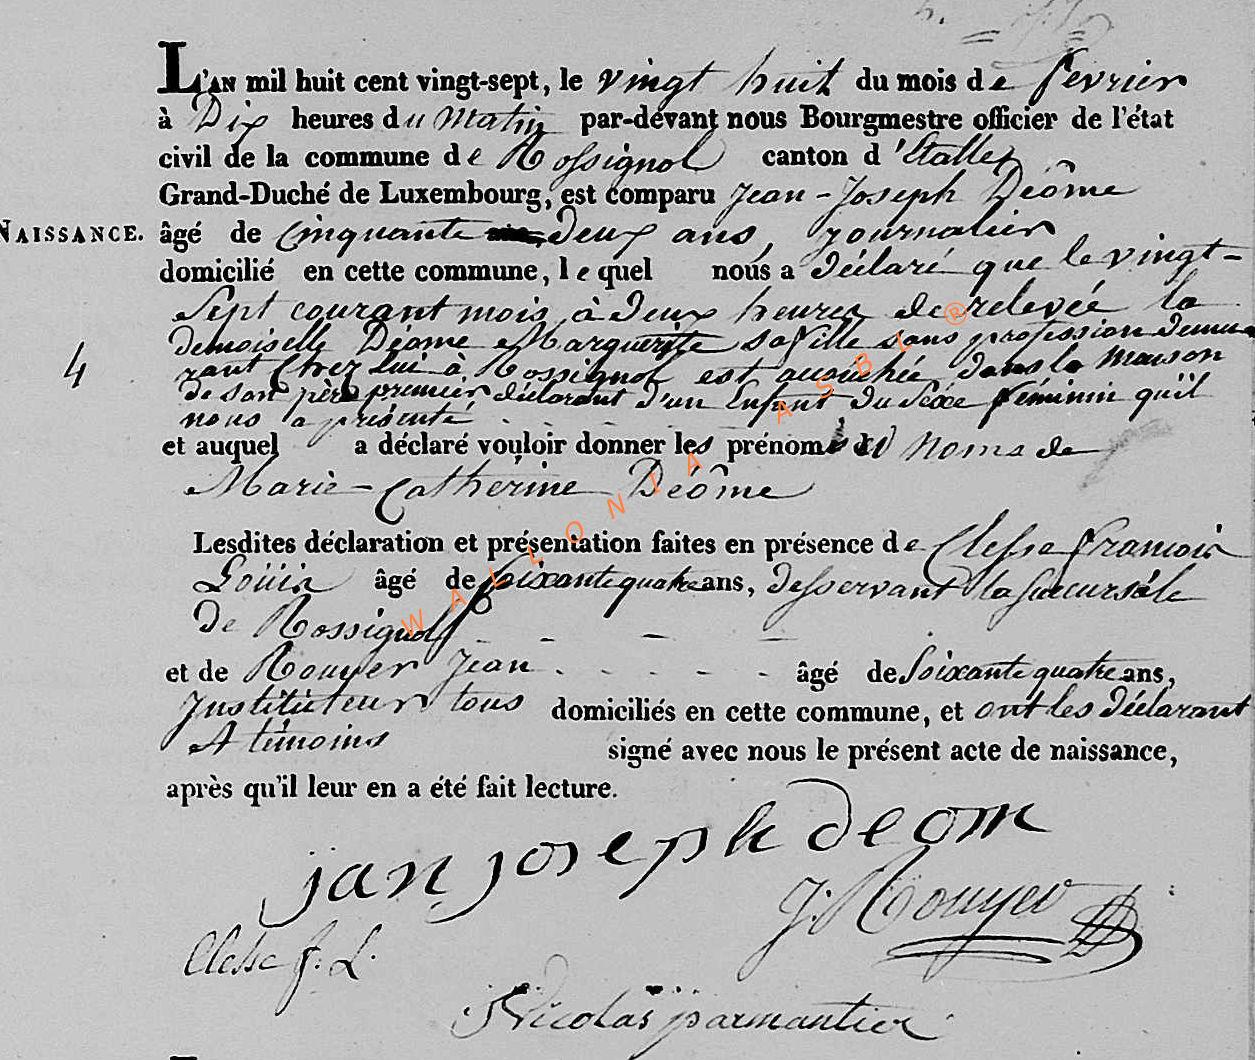 L'AN mil huit cent vingt-sept, le vingt huit du mois de fevrier
à Dix heures du Matin par-devant nous Bourgmestre officier de l'état
civil de la commune de Rossignol canton d'Etalles
Grand-Duché de Luxembourg, est comparu Jean-Joseph Déôme
NAISSANCE. âgé de Cinquante deux ans, Journalier
domicilié en cette commune, lequel nous a déclaré que le vingt-
Sept courant mois, à deux heures de relevée la
demoiselle Déome Marguerite sa fille sans profession demeu
4 rant Chez Lui à Rossignol est accouchée dans la Maison
de son père premier déclarant d'un Enfant du Sexe féminin qu'il
nous a présenté
et auquel a déclaré vouloir donner les prénoms et Noms de
Marie-Catherine Déôme
Lesdites déclaration et présentation faites en présence de Clesse francois
Loüis âgé de soixante quatre ans, desservant la Succursale
de Rossignol
et de Rouyer Jean âgé de Soixante quatre ans,
Instituteur tous domiciliés en cette commune, et ont les déclarant
Et témoins signé avec nous le présent acte de naissance,
après qu'il leur en a été fait lecture.
jan joseph deom
J. Rouyer
Clesse f. L.
Nicolas parmantier
WALLONIA ASBL ®